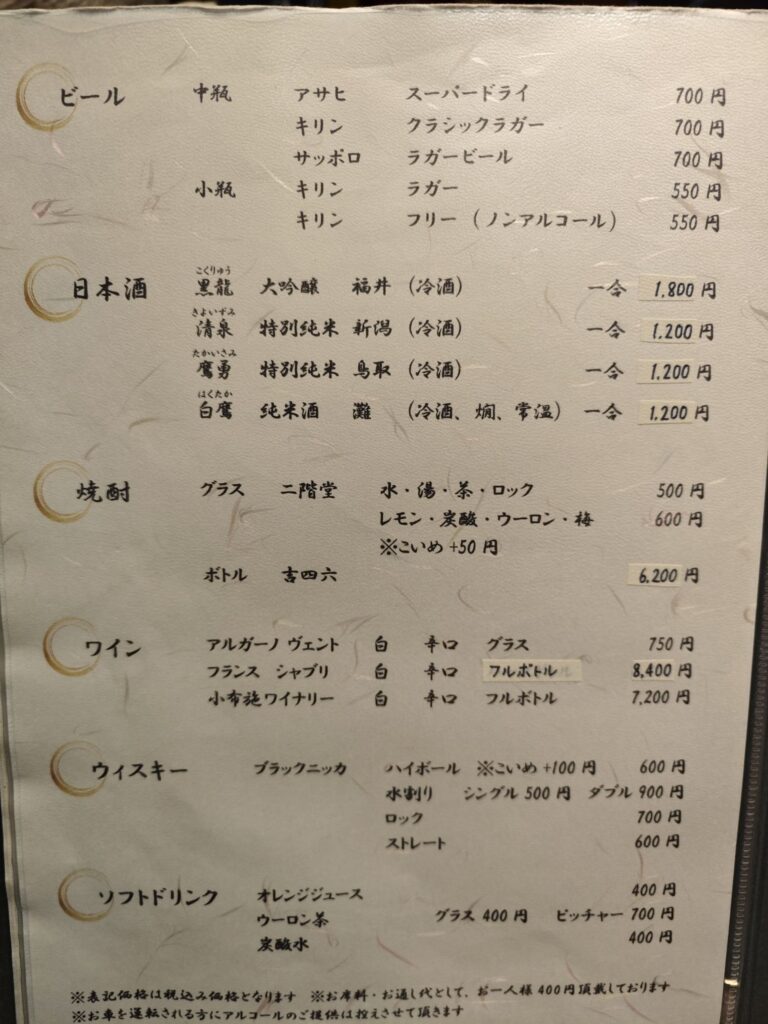 ビール 中瓶 アサヒ スーパードライ 700 円
キリン クラシックラガー 700 円
サッポロ ラガービール 700 円
小瓶 キリン ラガー 550 円
キリン フリー (ノンアルコール) 550 円
こくりゅう
日本酒 黒龍 大吟醸 福井 (冷酒) 一合 1,800 円
きよいずみ
清泉 特別純米 新潟 (冷酒) 一合 1,200 円
たかいさみ
鷹勇 特別純米 鳥取 (冷酒) 一合 1,200 円
はくたか
白鷹 純米酒 灘 (冷酒、燗、常温) 一合 1,200 円
焼酎 グラス 二階堂 水・湯・茶・ロック 500 円
レモン・炭酸・ウーロン・梅 600 円
※こいめ +50 円
ボトル 吉四六 6,200 円
ワイン アルガーノ ヴェント 白 辛口 グラス 750 円
フランス シャブリ 白 辛口 フルボトル 8,400 円
小布施ワイナリー 白 辛口 フルボトル 7,200 円
ウィスキー ブラックニッカ ハイボール ※こいめ +100 円 600 円
水割り シングル 500 円 ダブル 900 円
ロック 700 円
ストレート 600 円
ソフトドリンク オレンジジュース 400 円
ウーロン茶 グラス 400 円 ピッチャー 700 円
炭酸水 400 円
※表記価格は税込み価格となります ※お席料・お通し代として、お一人様 400円頂戴しております
※お車を運転される方にアルコールのご提供は控えさせて頂きます